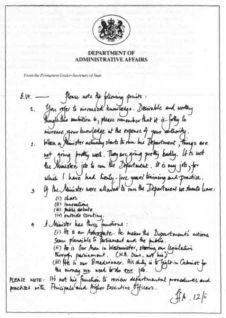 DEPARTMENT OF
ADMINISTRATIVE AFFAIRS
From the Permanent Under-Secretary of State
B.W. — Please note the following points:
1. You refer to increased knowledge. Desirable and worthy
though this ambition is, please remember that it is folly to
increase your knowledge at the expense of your authority.
2. When a Minister actually starts to run his Department, things are
not going pretty well. They are going pretty badly. It is not
the Minister's job to run the Department. It is my job, for
which I have had twenty-five years' training and practice.
3. If the Minister were allowed to run the Department we should have:
(i) chaos
(ii) innovations
(iii) public debate
(iv) outside scrutiny.
4. A Minister has three functions:
(i) He is an Advocate. He makes the Department's actions
seem plausible to Parliament and the public.
(ii) He is Our Man in Westminster, steering our legislation
through Parliament. (N.B. Ours, not his)
(iii) He is our Breadwinner. His duty is to fight in Cabinet for
the money we need to do our job.
PLEASE NOTE: It is not his function to review departmental procedures and
practices with Principals and Higher Executive Officers.
HA. 12/i